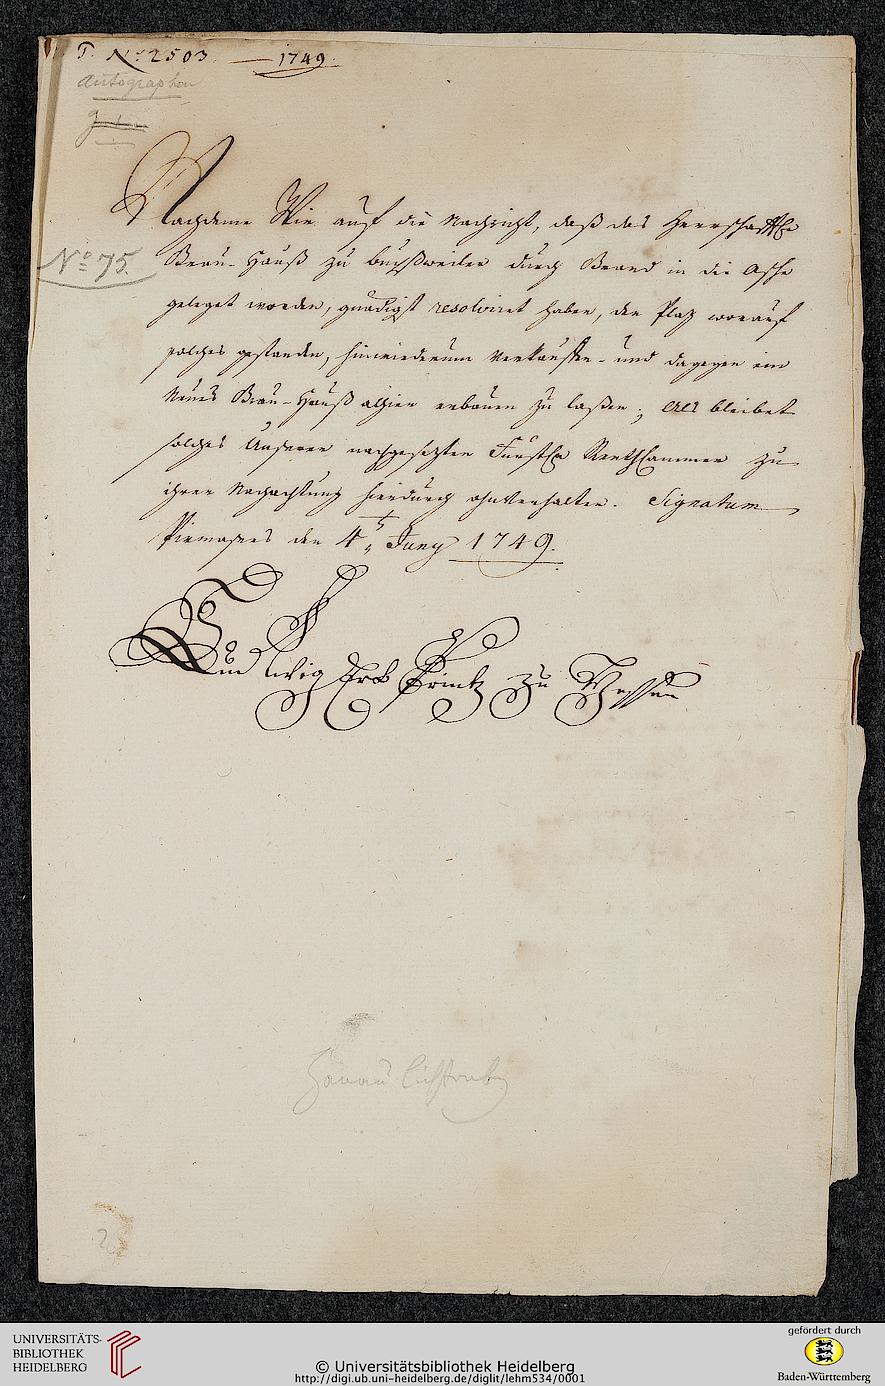 T. No. 2503. — 1749.
Autographen
No. 75.
Nachdeme Wir auf die Nachricht, daß das Herrschafftl.
Brau-Hauß zu Buchßweiler durch Brand in die Asche
geleget worden, gnädigst resolviret haben, den Plaz worauf
solches gestanden, hinwiederum verkauffen- und dagegen ein
Neües Brau-Hauß alhier erbauen zu laßen; Als bleibet
solches Unserer nachgesezten Fürstl. Renth Cammer zu
ihrer Nachachtung hierdurch ohnverhalten. Signatum
Pirmasens den 4t. Juny 1749.
Ludwig Erb Printz zu Hessen
Hanau Lichtenbg
UNIVERSITÄTS-
BIBLIOTHEK
HEIDELBERG
© Universitätsbibliothek Heidelberg
http://digi.ub.uni-heidelberg.de/diglit/lehm534/0001
gefördert durch
Baden-Württemberg